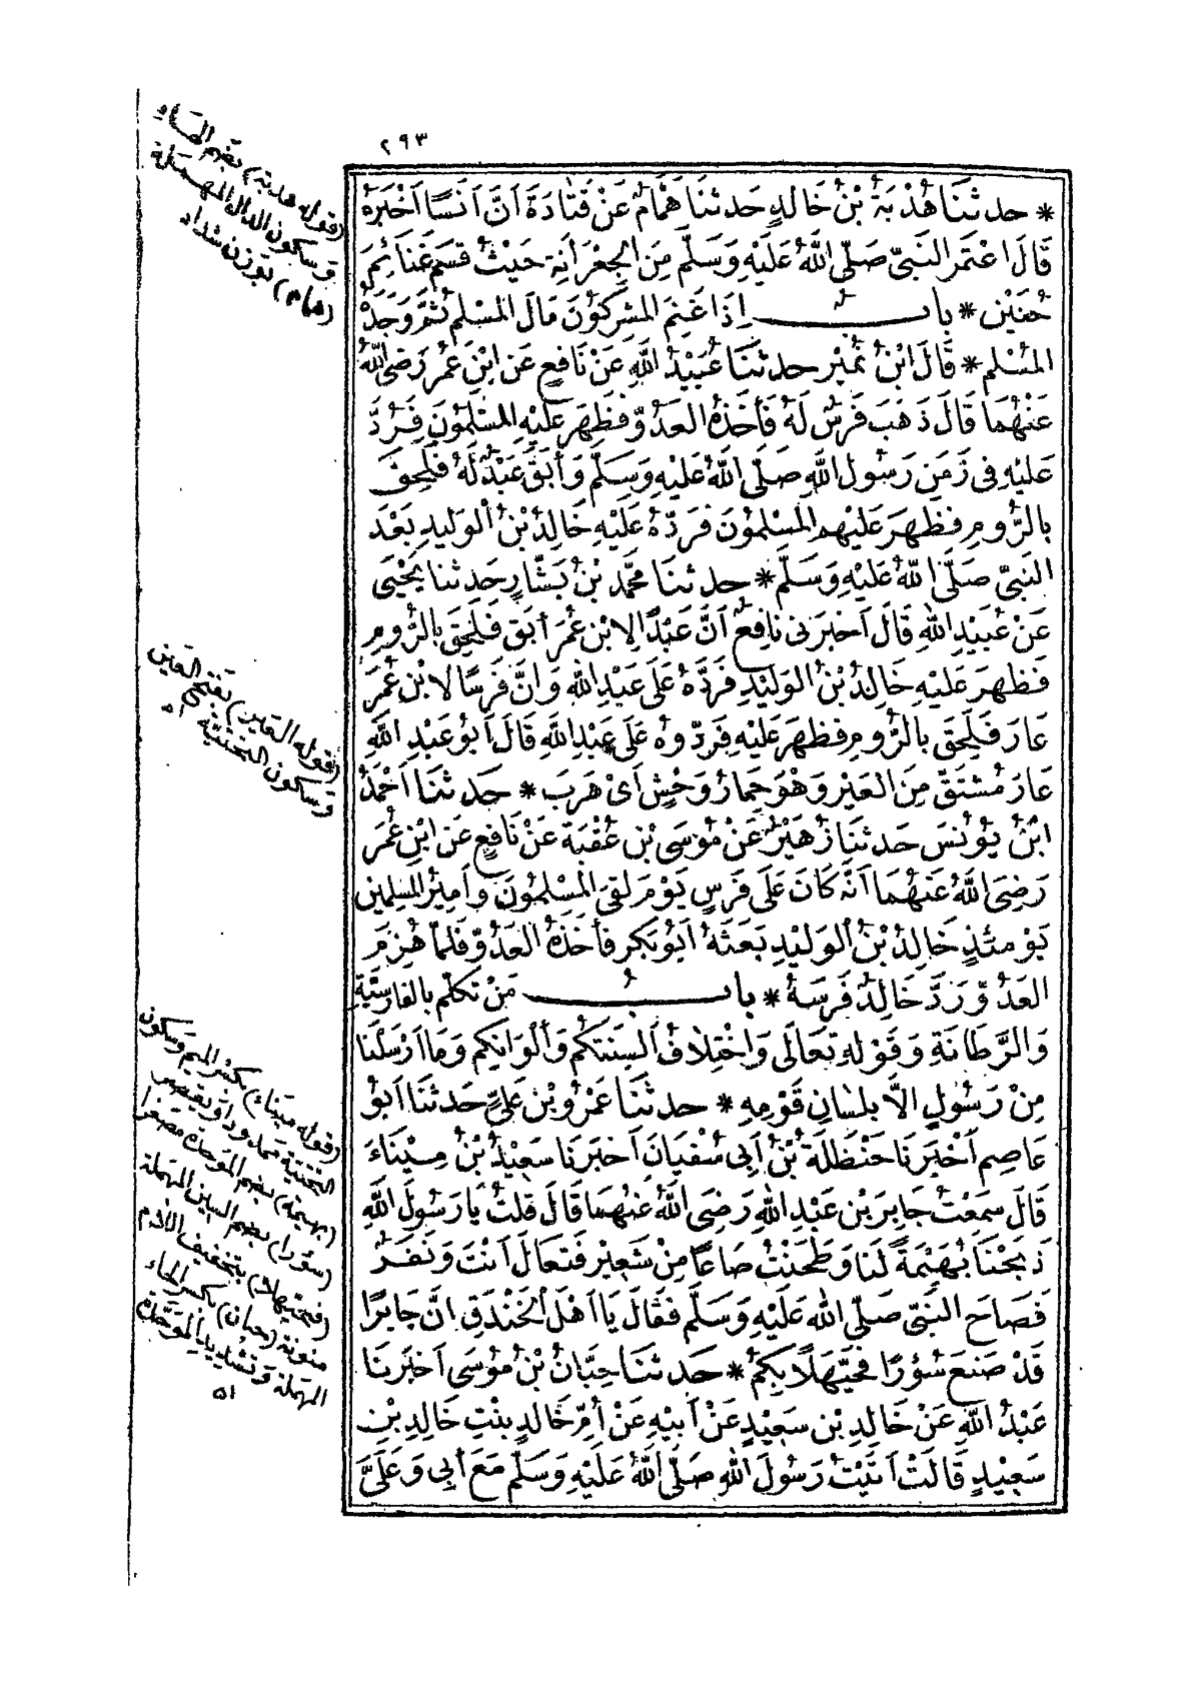 ٢٩٣
* حدثنَا هُدْبَةُ بْنُ خَالِدٍ حَدثنَا هَمَّامٌ عَنْ قَتَادَةَ اَنَّ اَنَسًا اَخْبَرَهُ
قَالَ اعْتَمَرَ النَبِىّ صَلّى اللهُ عَلَيْهِ وَسَلَّم مِنَ الجِعْرَانَةِ حَيْثُ قَسَمَ غَنَائِمَ
حُنَيْنٍ * بابٌ اِذَا غَنِمَ المُشْرِكُونَ مَالَ المُسْلِمِ ثُمَّ وَجَدَهُ
المُسْلِم * قَالَ ابْنُ نُمَيْرٍ حدثنَا عُبَيْدُ اللهِ عَنْ نَافِعٍ عَنِ ابْنِ عُمَرَ رَضِىَ اللهُ
عَنْهُمَا قَالَ ذَهَبَ فَرَسٌ لَهُ فَأَخَذَهُ العَدُوّ فَظَهَرَ عَلَيْهِ المُسْلِمُونَ فَرُدَّ
عَلَيْهِ فى زَمَنِ رَسُولِ اللهِ صَلّى اللهُ عَلَيْهِ وَسَلَّم وَأَبَقَ عَبْدٌ لَهُ فَلَحِقَ
بالرُّومِ فظَهَرَ عَلَيْهِم المُسْلمُونَ فَرَدَّهُ عَلَيْهِ خَالِدُ بْنُ الْوَلِيدِ بَعْدَ
النَبِىّ صَلَّى اللهُ عَلَيْهِ وَسَلَّم * حدثنا مُحَمَّد بْنُ بَشَّارٍ حَدثنا يَحْيَى
عَنْ عُبَيْدِ اللهِ قَالَ اَخبَرَنى نافِعٌ اَنَّ عَبْدًا لِابْنِ عُمَرَ أبَقَ فَلَحِقَ بالرُّومِ
فَظهَرَ عَلَيْهِ خَالِدُ بْنُ الوَلِيْدِ فَرَدَّهُ عَلَى عَبْدِ اللهِ وَانَّ فَرَسًا لابْنِ عُمَرَ
عَارَ فَلَحِقَ بالرُّومِ فظَهَرَ عَلَيْهِ فَرَدّوهُ عَلَى عَبْدِ اللهِ قَالَ أَبُو عَبْدِ اللهِ
عَارَ مُشْتَقٌّ مِنَ العَيْرِ وَهْوَ حِمَارُ وَحْشٍ اَىْ هَرَبَ * حَدثنَا اَحْمَدُ
ابْنُ يُونُسَ حَدثنَا زُهَيْرٌ عَنْ مُوسَى بْنِ عُقْبَةَ عَنْ نَافِعٍ عَنِ ابْنِ عُمَرَ
رَضِىَ اللهُ عَنْهُمَا اَنَّهُ كَانَ عَلَى فَرَسٍ يَوْمَ لَقِىَ المُسْلِمُونَ وأَمِيرُ المُسْلِمِين
يَوْمَئذٍ خَالِدُ بْنُ الْوَلِيدِ بَعَثَهُ اَبُو بَكرٍ فأَخَذَهُ العَدُوّ فَلمّا هُزِمَ
العَدُوّ رَدَّ خَالِدٌ فَرَسَهُ * بابُ مَنْ تَكَلّمَ بالفَارِسِيَّةِ
وَالرَّطَانَةِ وَقَوْلِهِ تَعَالَى وَاخْتِلَافُ أَلسِنَتِكُمْ وَأَلْوَانِكُم وَمَا اَرْسَلْنَا
مِنْ رَسُولٍ الاَّ بِلسَانِ قَوْمِهِ * حدثنَا عَمْرُو بْن عَلِىٍّ حَدثنَا اَبُو
عَاصِم اَخْبَرَنَا حَنْظَلَةُ بْنُ اَبِى سُفْيَانَ اَخبَرَنَا سَعِيْدُ بْنُ مِيْنَاءَ
قَالَ سَمِعْتُ جَابِرَ بْنَ عَبْدِ اللهِ رَضِىَ اللهُ عَنْهُمَا قَالَ قُلْتُ يَا رَسُولَ اللهِ
ذَبَحْنَا بُهَيْمَةً لَنَا وَطَحَنْتُ صَاعًا مِنْ شَعِيْرٍ فَتَعَالَ اَنْتَ وَنَفَرٌ
فَصَاحَ النَبِىّ صَلّى الله عَلَيْهِ وَسَلَّم فَقَالَ يَا اَهْلَ الْخَنْدَقِ انَّ جَابِرًا
قَدْ صَنَعَ سُؤْرًا فَحَيَّهَلًا بِكُمْ * حَدثنَا حِبَّانُ بْنُ مُوْسَى اَخبَرَنَا
عَبْدُ اللهِ عَنْ خَالِدِ بْنِ سَعِيْدٍ عَنْ اَبِيْهِ عَنْ أُمِّ خَالِدٍ بِنْتِ خَالِدِ بْنِ
سَعِيْدٍ قَالَتْ اَتَيْتُ رَسُولَ اللهِ صَلّى اللهُ عَلَيْهِ وَسَلَّم مَعَ أَبِى وَعَلَىَّ
(قوله هدبة) بضم الهاء
وسكون الدال المهملة
(همام) بوزن شداد
(قوله العير) بفتح العين
وسكون التحتيّة اه
(قوله ميناء) بكسر الميم وسكون
التحتيّة ممدودا ويقصر
(بهيمة) بضم الموحدة مصغرا
(سؤرا) بضم السين المهملة
(فحيّهلا) بتخفيف اللام
منونة (حبان) بكسر الحاء
المهملة وتشديد الموحّدة
اه